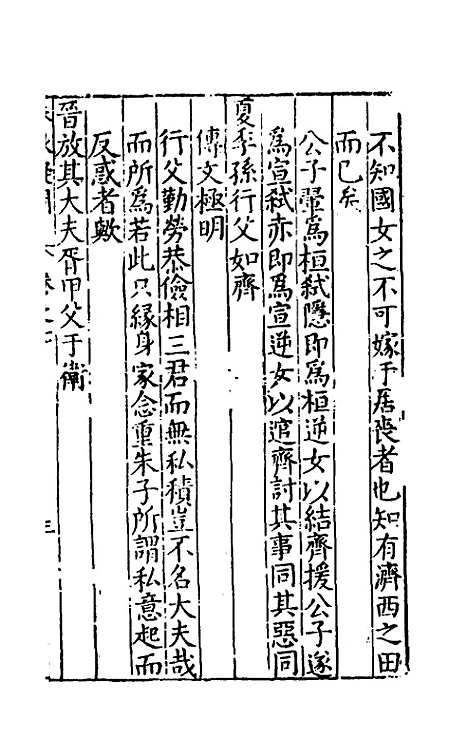 不知國女之不可嫁于居喪者也知有濟西之田
而已矣
公子翬爲桓弑隱即爲桓逆女以結齊援公子遂
爲宣弑亦即爲宣逆女以逭齊討其事同其惡同
夏季孫行父如齊
傳文極明
行父勤勞恭儉相三君而無私積豈不名大夫哉
而所爲若此只緣身家念重朱子所謂私意起而
反惑者歟
晉放其大夫胥甲父于衛
三